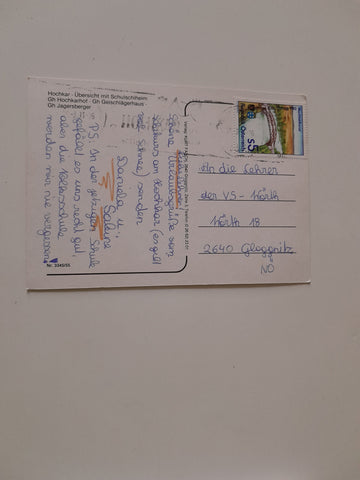 Hochkar - Übersicht mit Schulschiheim
Gh Hochkarhof - Gh Geischlägerhaus -
Gh Jagersberger
Schöne Urlaubsgrüße vom
am Hochkar (es gibt
Schnee), senden
Daniela u.
Sabine
PS: In der jetzigen Schule
gefällt es uns recht gut,
aber die Volksschule
werden wir nie vergessen!
Nr. 3345/55
S5
An die Lehrer
der VS - Wörth
Wörth 18
2640 Gloggnitz
NÖ